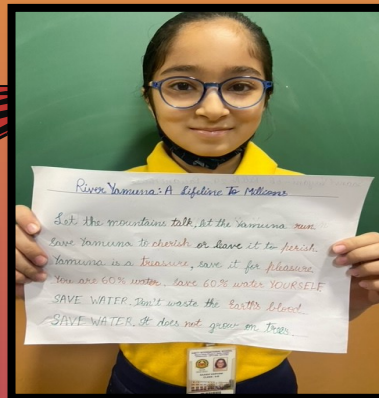 River Yamuna: A Lifeline To Millions
Let the mountains talk, let the Yamuna run
Save Yamuna to cherish or leave it to perish.
Yamuna is a treasure, save it for pleasure
You are 60% water. Save 60% water YOURSELF
SAVE WATER. Don't waste the Earth's blood
SAVE WATER. It does not grow on trees.